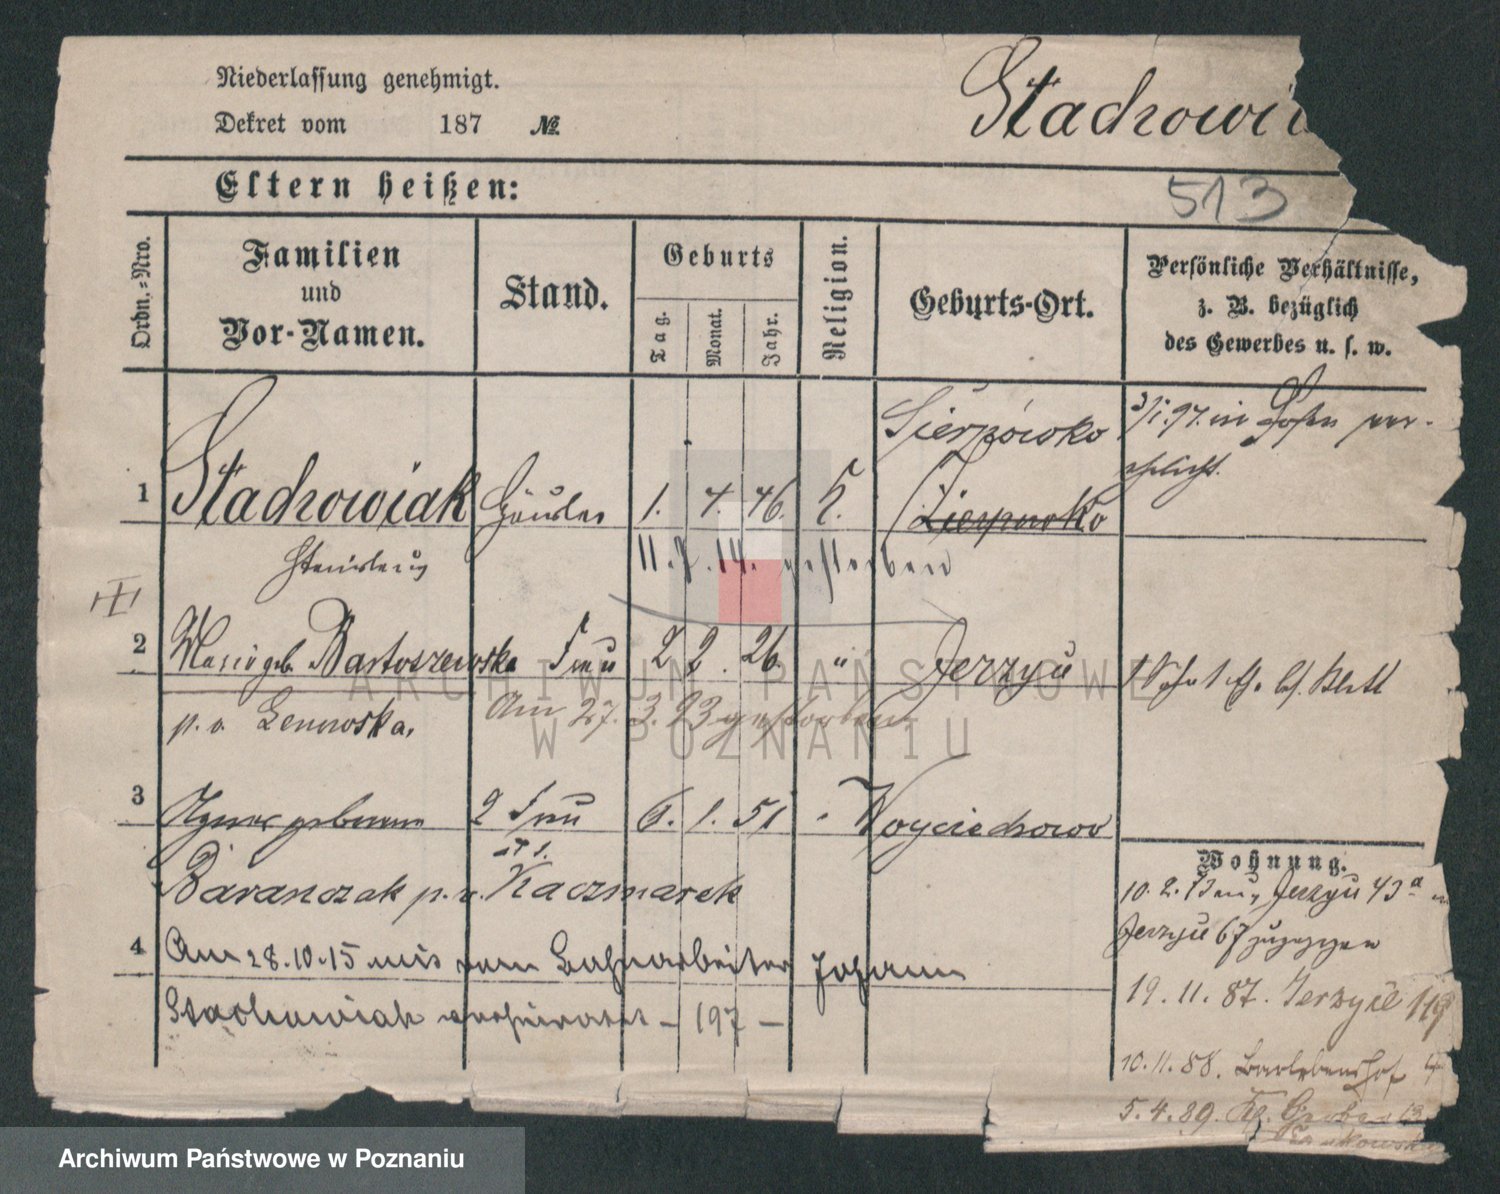 Niederlassung genehmigt.
Dekret vom 187 №
Stachowi
513
Eltern heißen:
Ordn.=Nro.
Familien
und
Vor-Namen.
Stand.
Geburts
Tag.
Monat.
Jahr.
Religion.
Geburts-Ort.
Persönliche Verhältnisse,
z. B. bezüglich
des Gewerbes u. s. w.
Sierpówko
3/1.97. in Posen
1 Stachowiak Häusler 1. 4. 46. K.
Stanislaus
11. 7. 14. gestorben
2 Maria geb. Bartoszewska Frau 2 2. 26. " Jerzyce
p. v. Lenowska.
Am 27. 3. 93 gestorben
3 Agnes geborene 2 Frau 6. 1. 51 Woyciechowo
Baranczak p. v. Kaczmarek
Wohnung.
10. 2. Jerzyce 43a
Jerzyce 67 zugezogen
4 Am 28.10.15 mit dem Bahnarbeiter Johann
Stachowiak verheiratet – 197 –
19. 11. 87. Jerzyce 119
10. 11. 88. Bartlebenshof 4
5. 4. 89. Gr. Gerber 13
ARCHIWUM PAŃSTWOWE
W POZNANIU
Archiwum Państwowe w Poznaniu